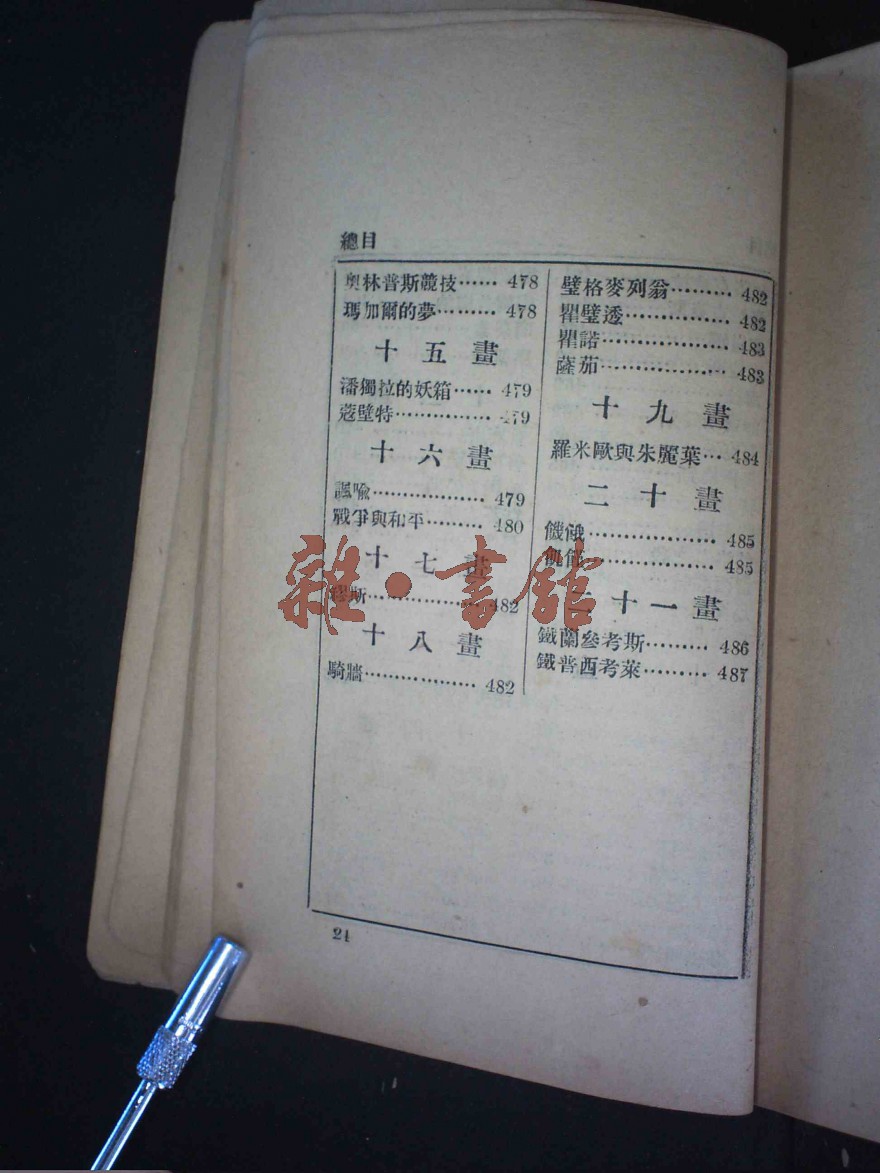 總目
奧林普斯競技⋯⋯ 478
瑪加爾的夢⋯⋯⋯ 478
十五畫
潘獨拉的妖箱⋯⋯ 479
蔻壁特⋯⋯⋯⋯⋯ 479
十六畫
諷喩⋯⋯⋯⋯⋯⋯ 479
戰爭與和平⋯⋯⋯ 480
十七畫
繆斯⋯⋯⋯⋯⋯⋯ 482
十八畫
騎牆⋯⋯⋯⋯⋯⋯ 482
璧格麥列翁⋯⋯⋯ 482
瞿璧透⋯⋯⋯⋯⋯ 482
瞿諾⋯⋯⋯⋯⋯⋯ 483
薩茄⋯⋯⋯⋯⋯⋯ 483
十九畫
羅米歐與朱麗葉⋯ 484
二十畫
饑餓⋯⋯⋯⋯⋯⋯ 485
⋯⋯⋯⋯⋯ 485
二十一畫
鐵蘭參考斯⋯⋯⋯ 486
鐵普西考萊⋯⋯⋯ 487
24
雜·書館